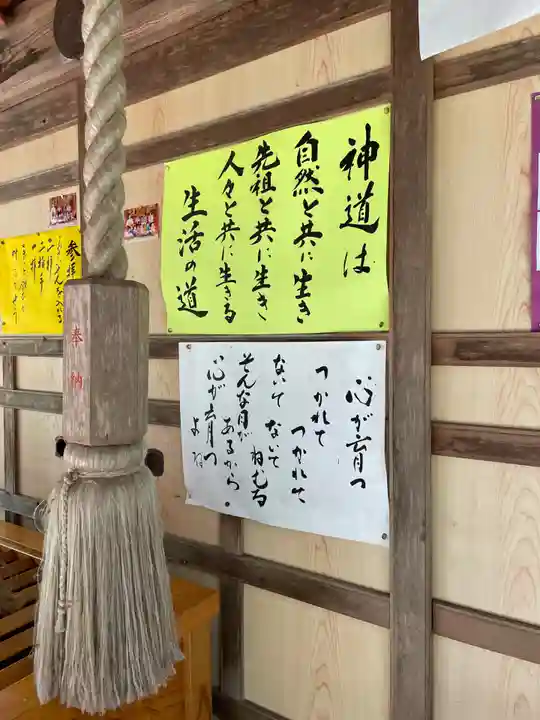 神道は
自然と共に生き
先祖と共に生き
人々と共に生きる
生活の道
心が育つ
つかれて
つかれて
ないて ないて
ねむる
そんな月が
あるから
心が育つ
よね
参拝
二拍手
一拝
奉納